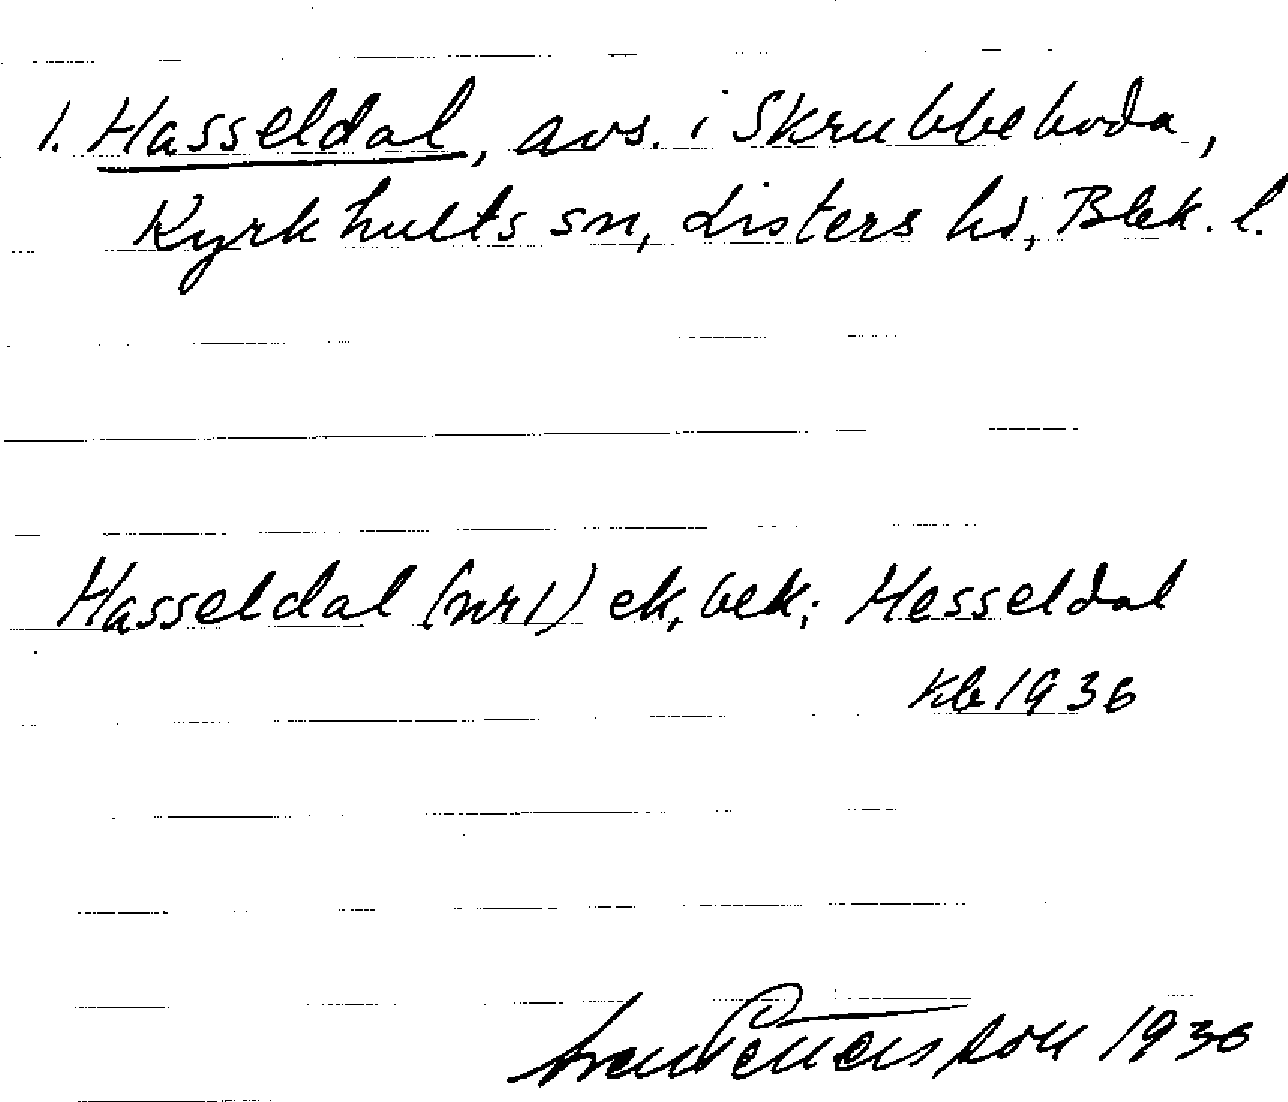 1. Hasseldal, avs. i Skrubbeboda,
Kyrkhults sn, Listers hd, Blek. l.
Hasseldal (nr 1) ek, bek; Hesseldal
Kb 1936
Pettersson 1936